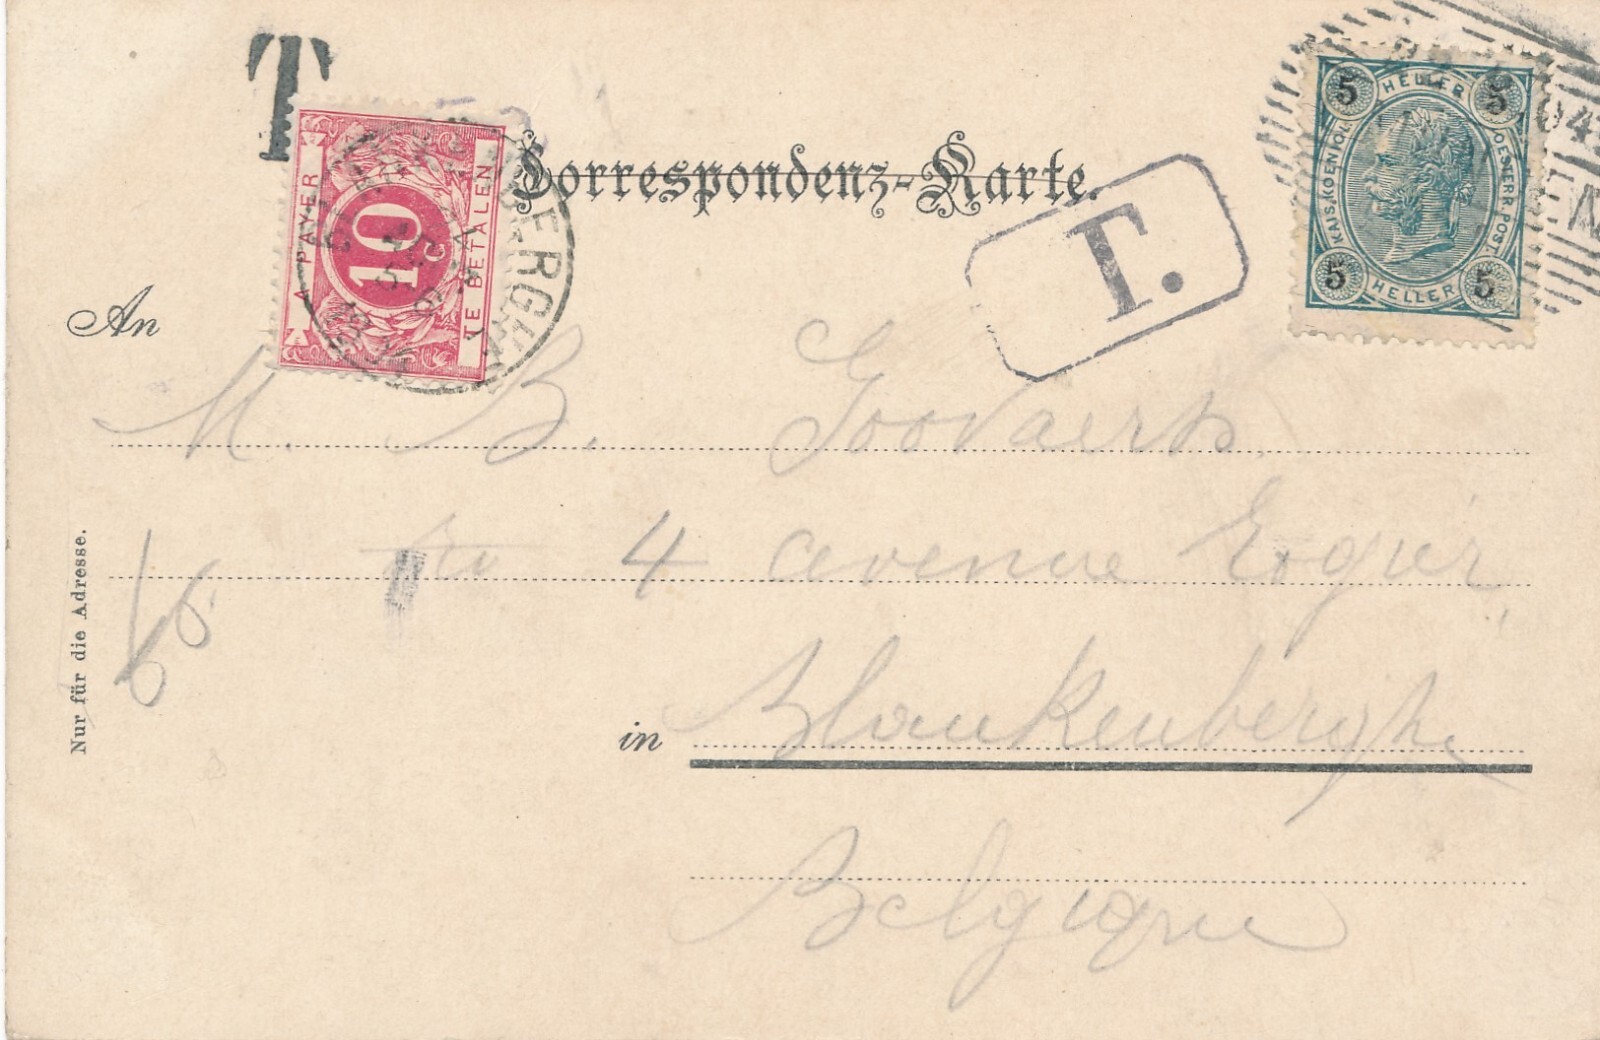 T
A PAYER
10 c
TE BETALEN
Correspondenz-Karte.
T.
5 HELLER 5
KAIS. KOEN
OESTERR. POST
5 HELLER 5
An
M. B. Goovaerts
4 avenue
in Blankenberghe
Belgique
Nur für die Adresse.